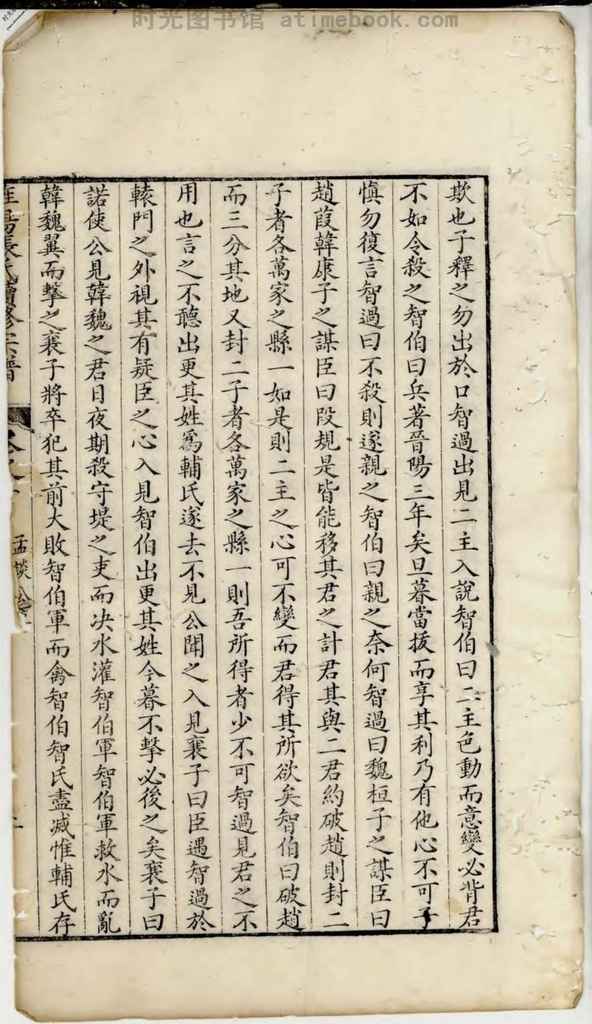 时光图书馆 atimebook.com
欺也子釋之勿出於口智過出見二主入說智伯曰二主色動而意變必背君
不如令殺之智伯曰兵著晉陽三年矣旦暮當拔而享其利乃有他心不可子
慎勿復言智過曰不殺則遂親之智伯曰親之奈何智過曰魏桓子之謀臣曰
趙葭韓康子之謀臣曰段規是皆能移其君之計君其與二君約破趙則封二
子者各萬家之縣一如是則二主之心可不變而君得其所欲矣智伯曰破趙
而三分其地又封二子者各萬家之縣一則吾所得者少不可智過見君之不
用也言之不聽出更其姓爲輔氏遂去不見公聞之入見襄子曰臣遇智過於
轅門之外視其有疑臣之心入見智伯出更其姓今暮不擊必後之矣襄子曰
諾使公見韓魏之君日夜期殺守堤之吏而決水灌智伯軍智伯軍救水而亂
韓魏翼而擊之襄子將卒犯其前大敗智伯軍而禽智伯智氏盡滅惟輔氏存
張氏續修宗譜 孟談公